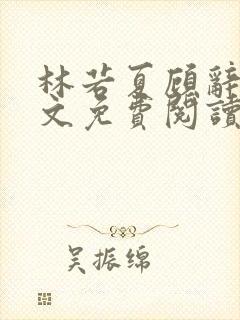 林若夏顾辭
文免費閱讀
吴振绵